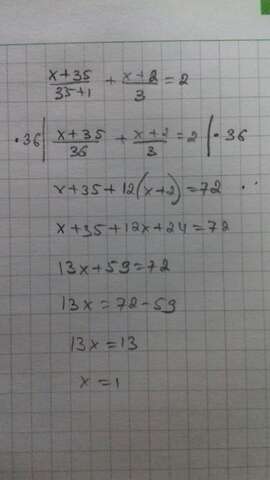 x+35/35+1 + x+2/3 = 2
·36 | x+35/36 + x+2/3 = 2 | ·36
x+35+12(x+2)=72
x+35+12x+24=72
13x+59=72
13x=72-59
13x=13
x=1